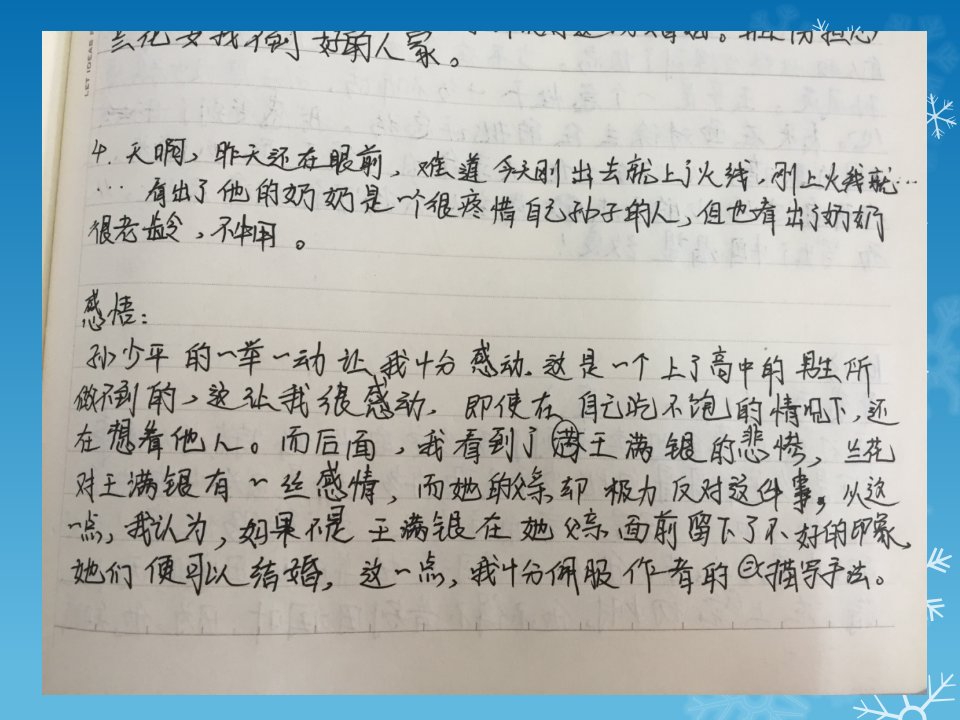 兰花要找个好的人家。
4. 天啊，昨天还在眼前，难道今天刚出去就上了火线，刚上火线就…
… 看出了他的奶奶是一个很疼惜自己孙子的人，但也看出了奶奶
很老龄，不中用。
感悟：
孙少平的一举一动让我十分感动。这是一个上了高中的男生所
做不到的，这让我很感动。即使在自己吃不饱的情况下，还
在想着他人。而后面，我看到了王满银的悲惨，兰花
对王满银有一丝感情，而她的父亲却极力反对这件事，从这
一点，我认为，如果不是王满银在她父亲面前留下了不好的印象，
她们便可以结婚，这一点，我十分佩服作者的描写手法。